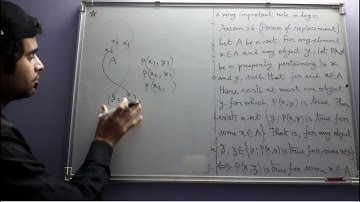 ☆
x₃ x₁
x₂
A
P(x₁, y₁)
P(x₂, y₂)
P(x₃, )
a very important role in logic
Axiom 26 (Axiom of replacement)
Let A be a set. For any element
x∈A and any object y, let P(x,y)
be a property pertaining to x
and y, such that for each x∈A
There exists at most one object
y for which P(x,y) is true. Then
exists a set {y: P(x,y) is true for
some x∈A}. That is, for any object
z, z∈{y: P(x,y) is true for some x∈A}
⟺ P(x,z) is true for some x∈A